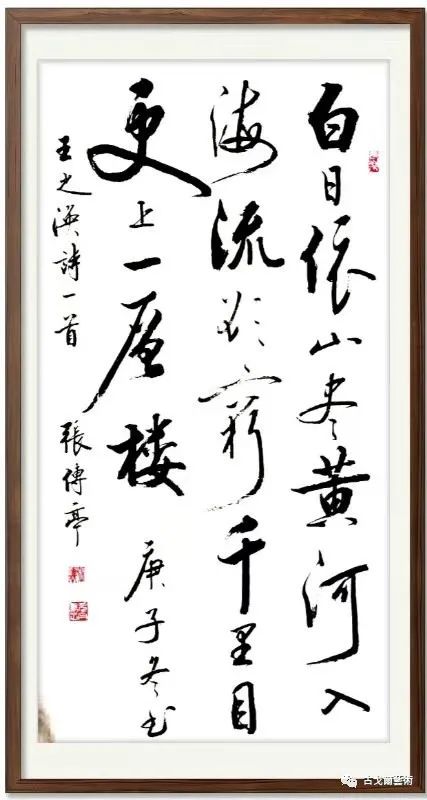 白日依山盡黄河入
海流欲窮千里目
更上一層楼
庚子冬书
王之渙詩一首
張傳亭
古戈爾藝術